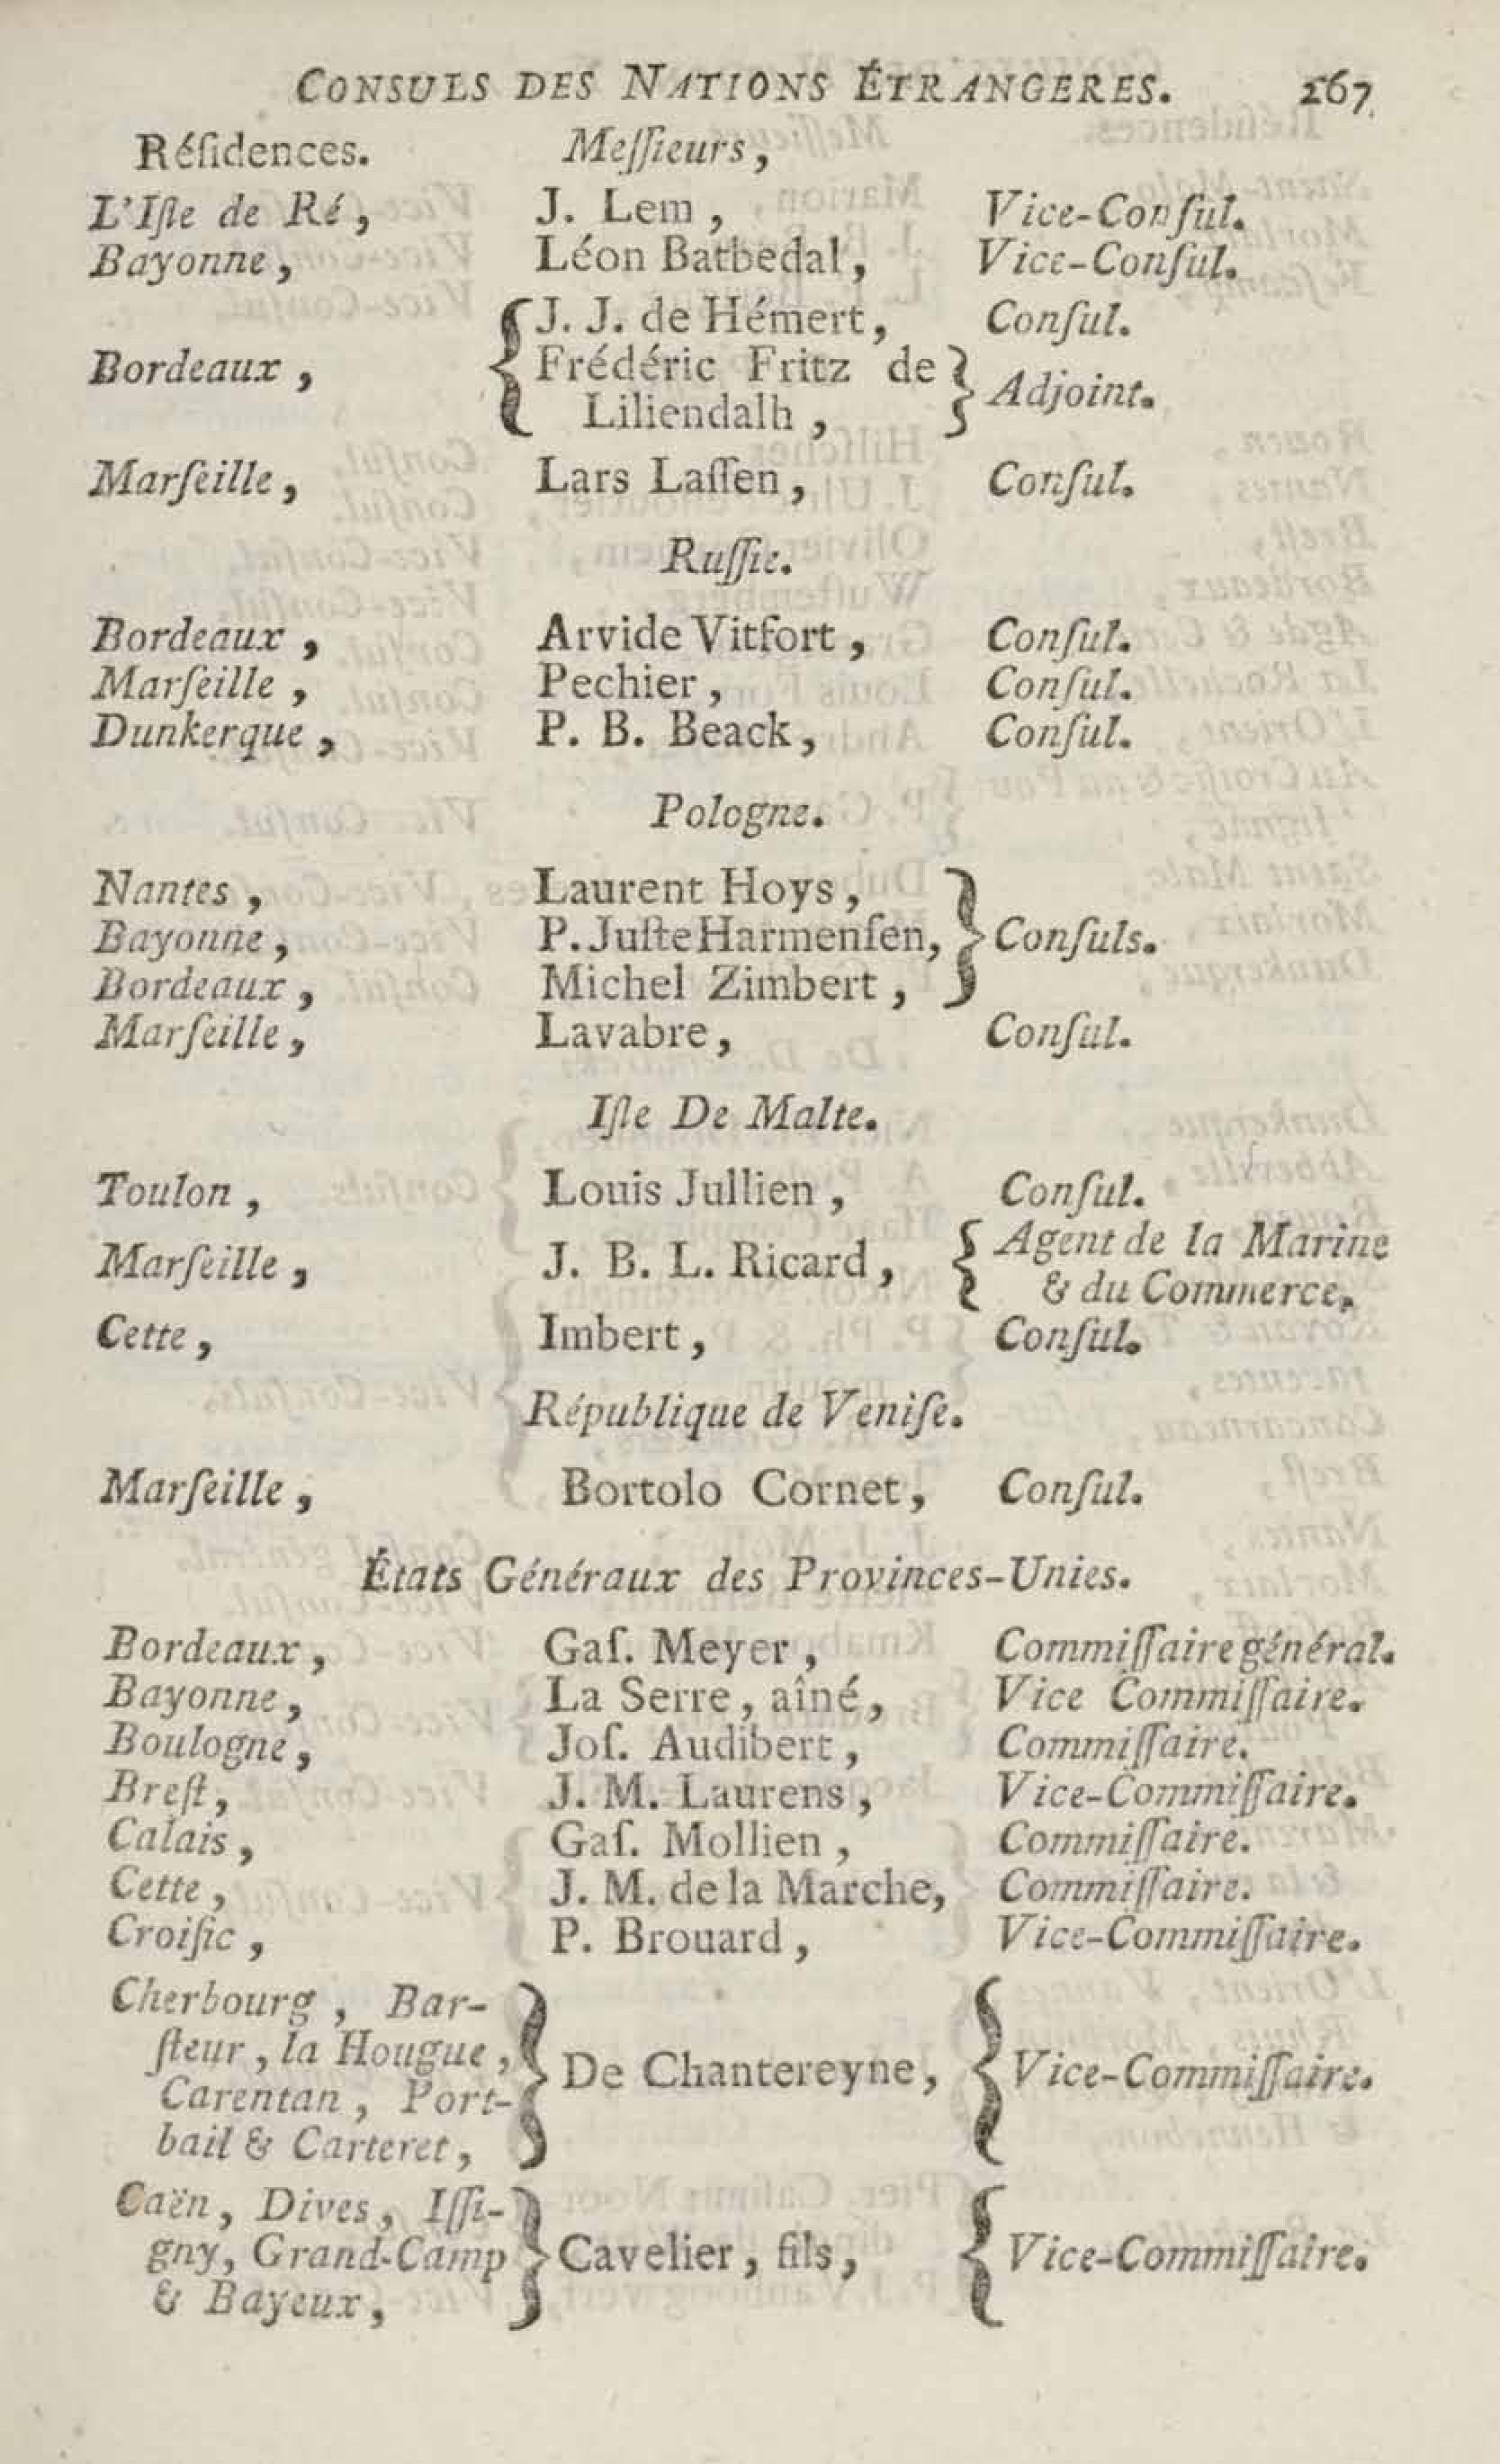 CONSULS DES NATIONS ÉTRANGERES. 267
Réſidences. Meſſieurs,
L'Iſle de Ré, J. Lem, Vice-Conſul.
Bayonne, Léon Batbedal, Vice-Conſul.
J. J. de Hémert, Conſul.
Bordeaux, Frédéric Fritz de
Liliendalh, Adjoint.
Marſeille, Lars Laſſen, Conſul.
Ruſſie.
Bordeaux, Arvide Vitfort, Conſul.
Marſeille, Pechier, Conſul.
Dunkerque, P. B. Beack, Conſul.
Pologne.
Nantes, Laurent Hoys,
Bayonne, P. Juſte Harmenſen, Conſuls.
Bordeaux, Michel Zimbert,
Marſeille, Lavabre, Conſul.
Iſle De Malte.
Toulon, Louis Jullien, Conſul.
Marſeille, J. B. L. Ricard, Agent de la Marine
& du Commerce.
Cette, Imbert, Conſul.
République de Veniſe.
Marſeille, Bortolo Cornet, Conſul.
États Généraux des Provinces-Unies.
Bordeaux, Gaſ. Meyer, Commiſſaire général.
Bayonne, La Serre, aîné, Vice Commiſſaire.
Boulogne, Joſ. Audibert, Commiſſaire.
Breſt, J. M. Laurens, Vice-Commiſſaire.
Calais, Gaſ. Mollien, Commiſſaire.
Cette, J. M. de la Marche, Commiſſaire.
Croiſic, P. Brouard, Vice-Commiſſaire.
Cherbourg, Bar-
ſteur, la Hougue,
Carentan, Port-
bail & Carteret, De Chantereyne, Vice-Commiſſaire.
Caën, Dives, Iſſi-
gny, Grand-Camp
& Bayeux, Cavelier, fils, Vice-Commiſſaire.